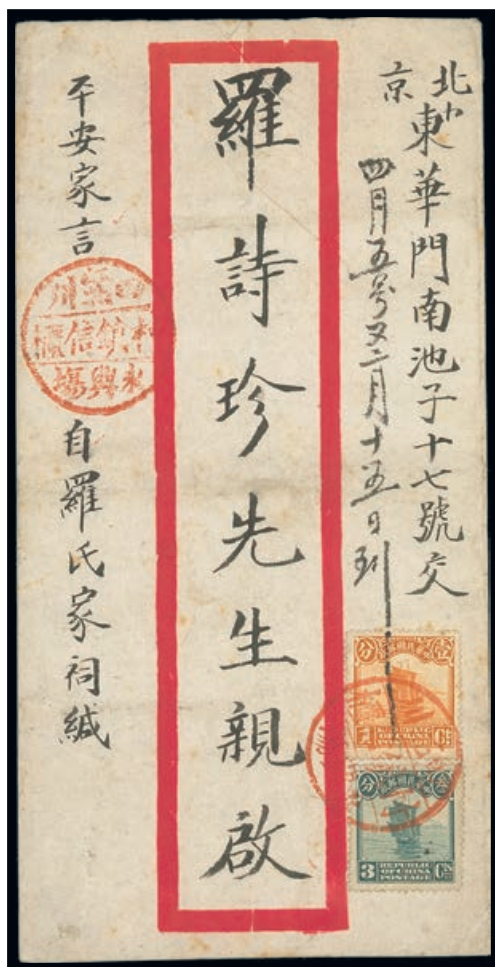 北京東華門南池子十七號交
四月五号又二月十五日到
羅詩珍先生親啟
平安家言
自羅氏家祠緘
四川
鎮信櫃
永興場
分 壹
1 Ct
REPUBLIC
OF CHINA
POSTAGE
分
3 Cts
REPUBLIC
OF CHINA
POSTAGE